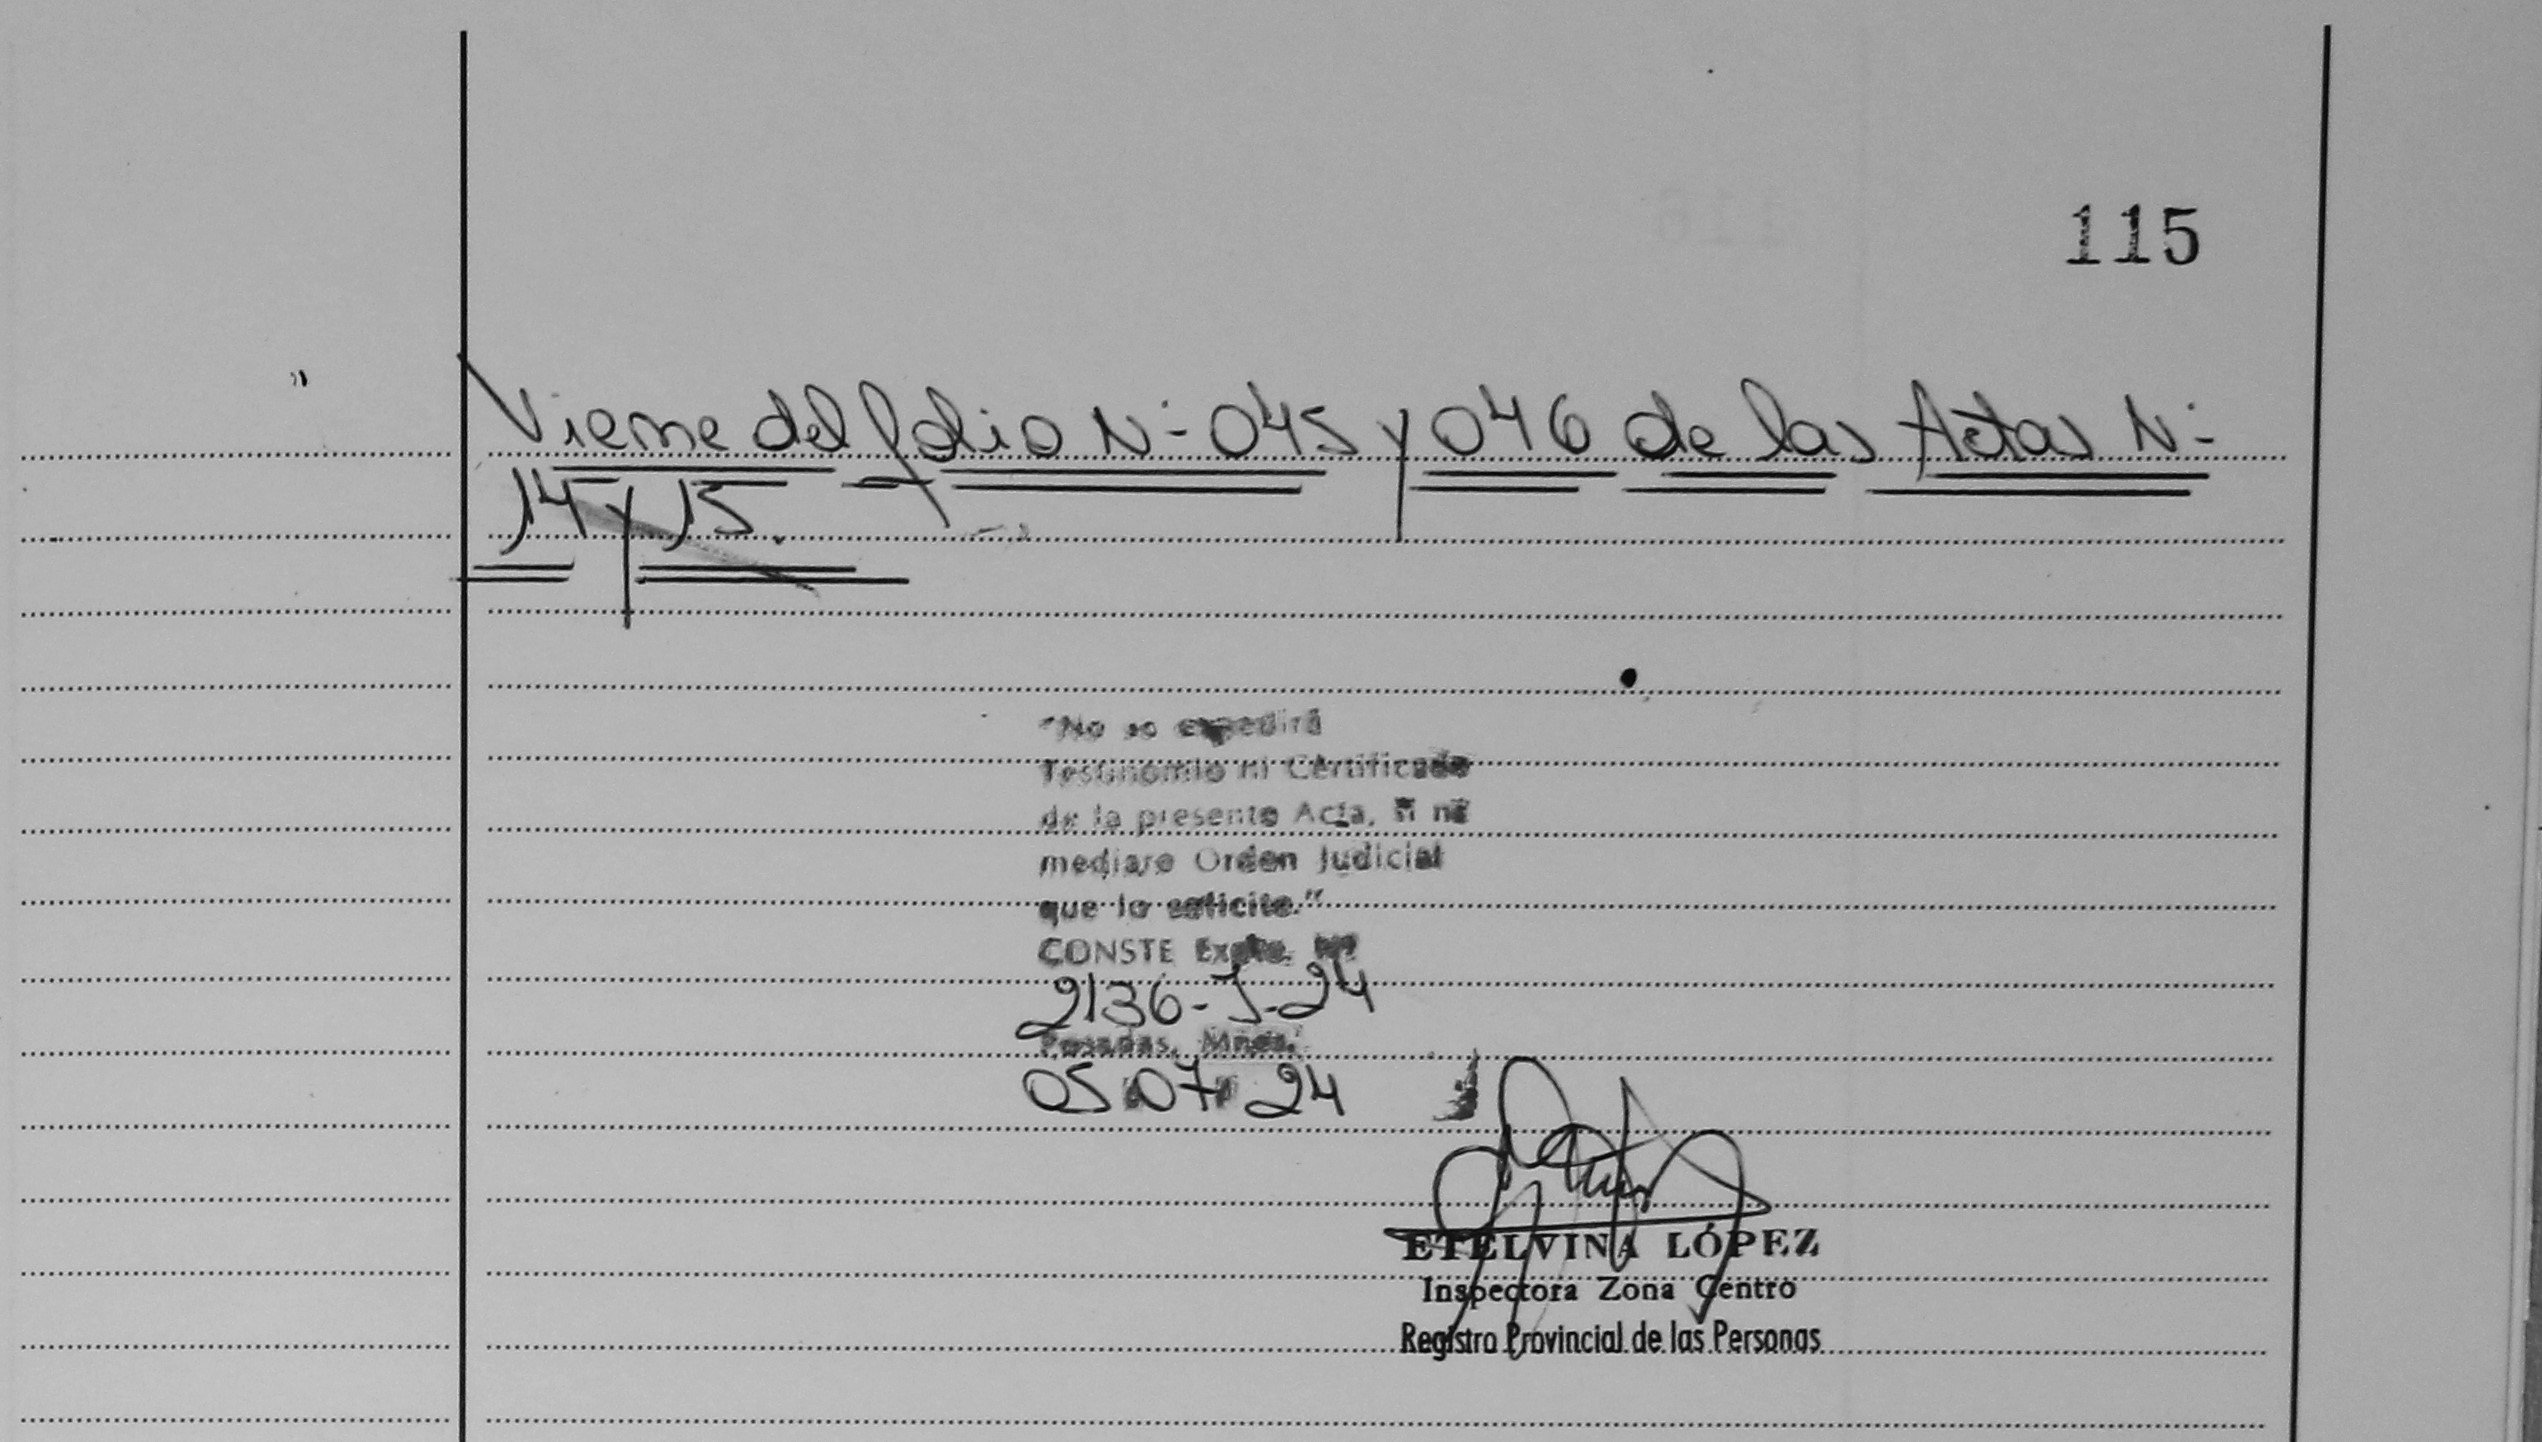 115
Viene del folio N° 045 y 046 de las Actas N°
14 y 15.
"No se expedirá
Testinomio ni Certificado
de la presente Acta, si no
mediare Orden Judicial
que lo solicite."
CONSTE Expte. Nº
2136-J-24
Posadas, Mnes.
05 07 24
ETELVINA LÓPEZ
Inspectora Zona Centro
Registro Provincial de las Personas